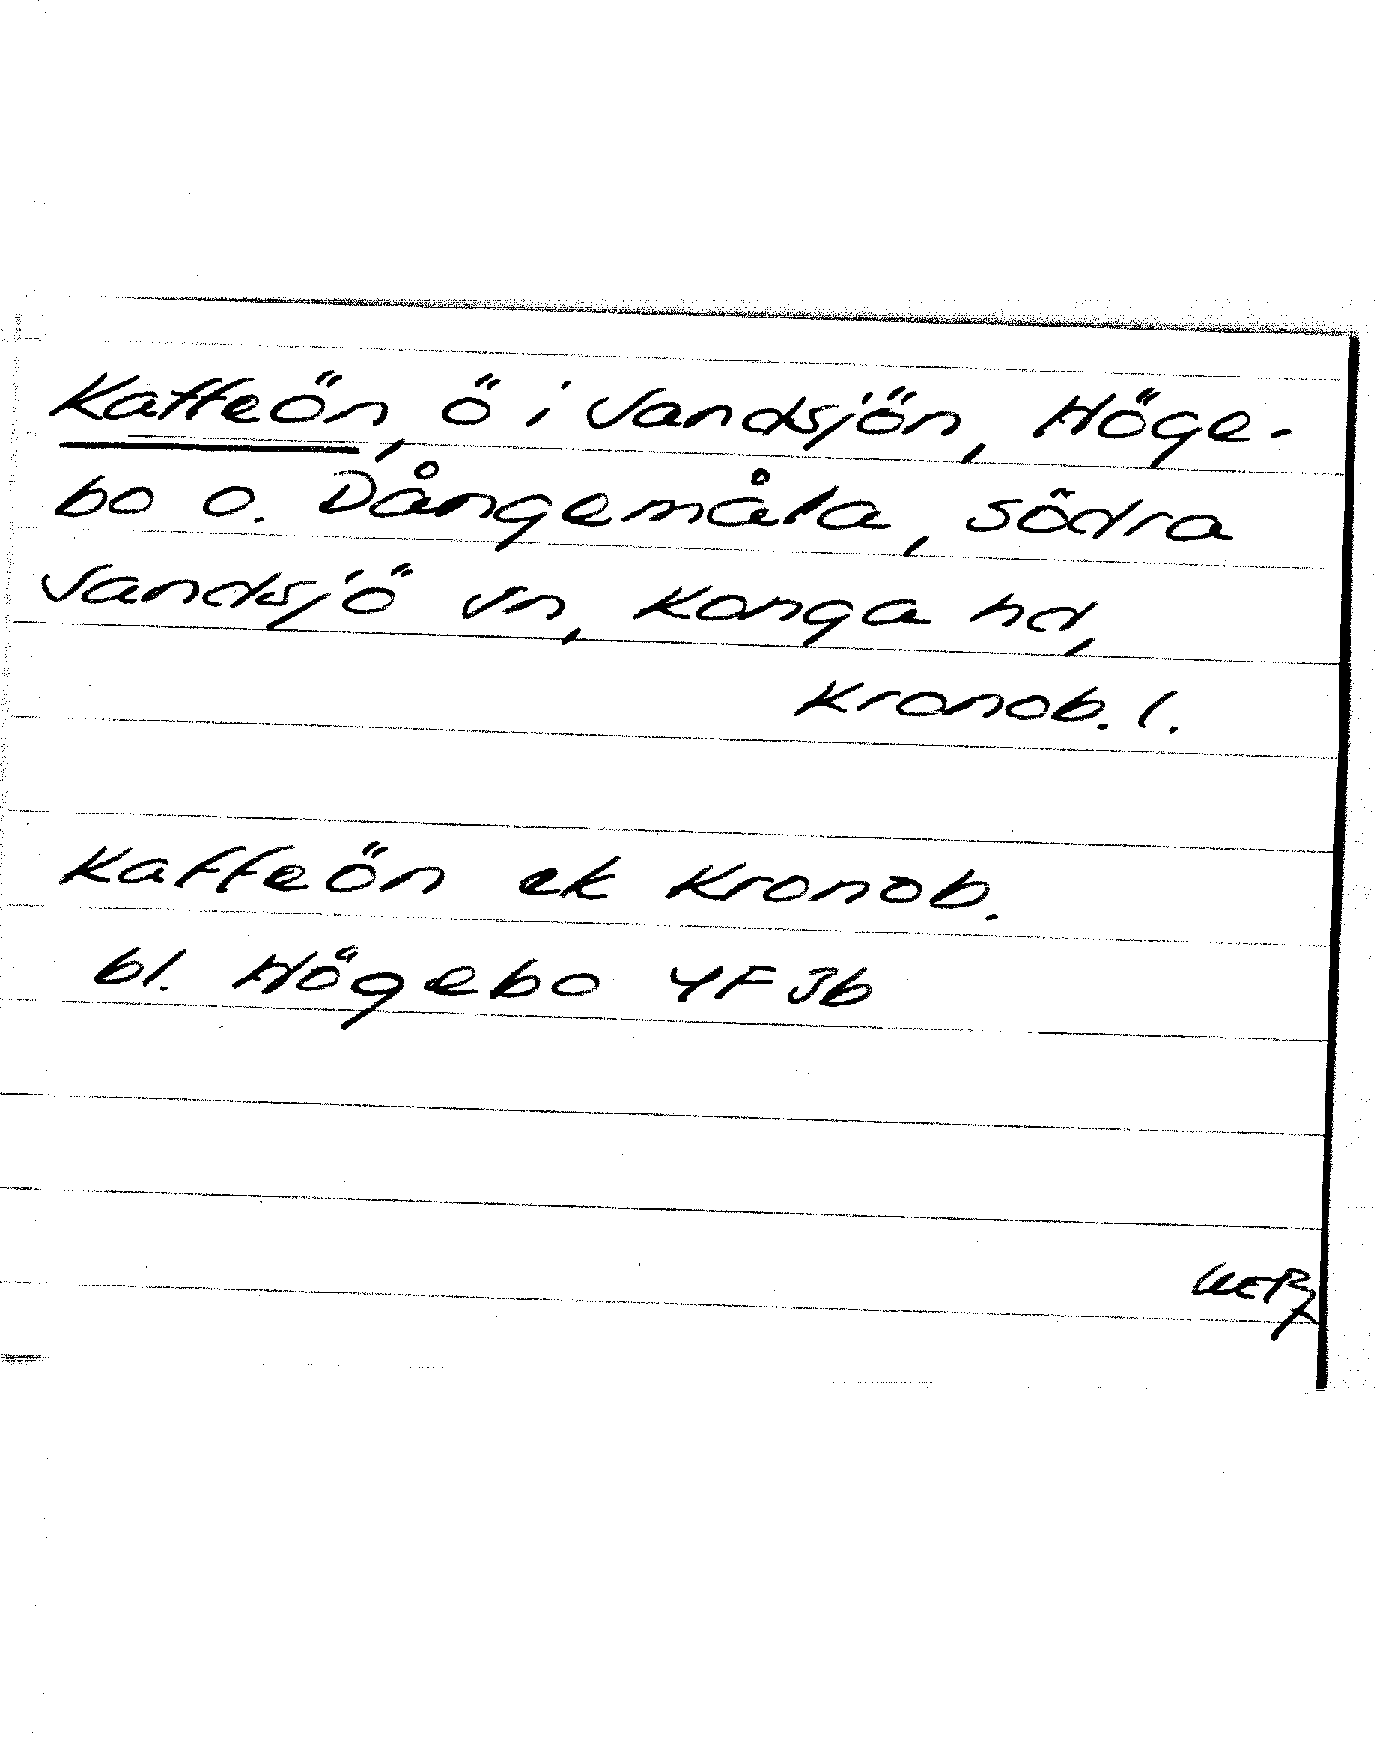 Kaffeön, ö i Sandsjön, Höge-
bo o. Dångemåla, södra
Sandsjö sn, Konga hd,
Kronob. l.
Kaffeön ek Kronob.
bl. Högebo 4F3b